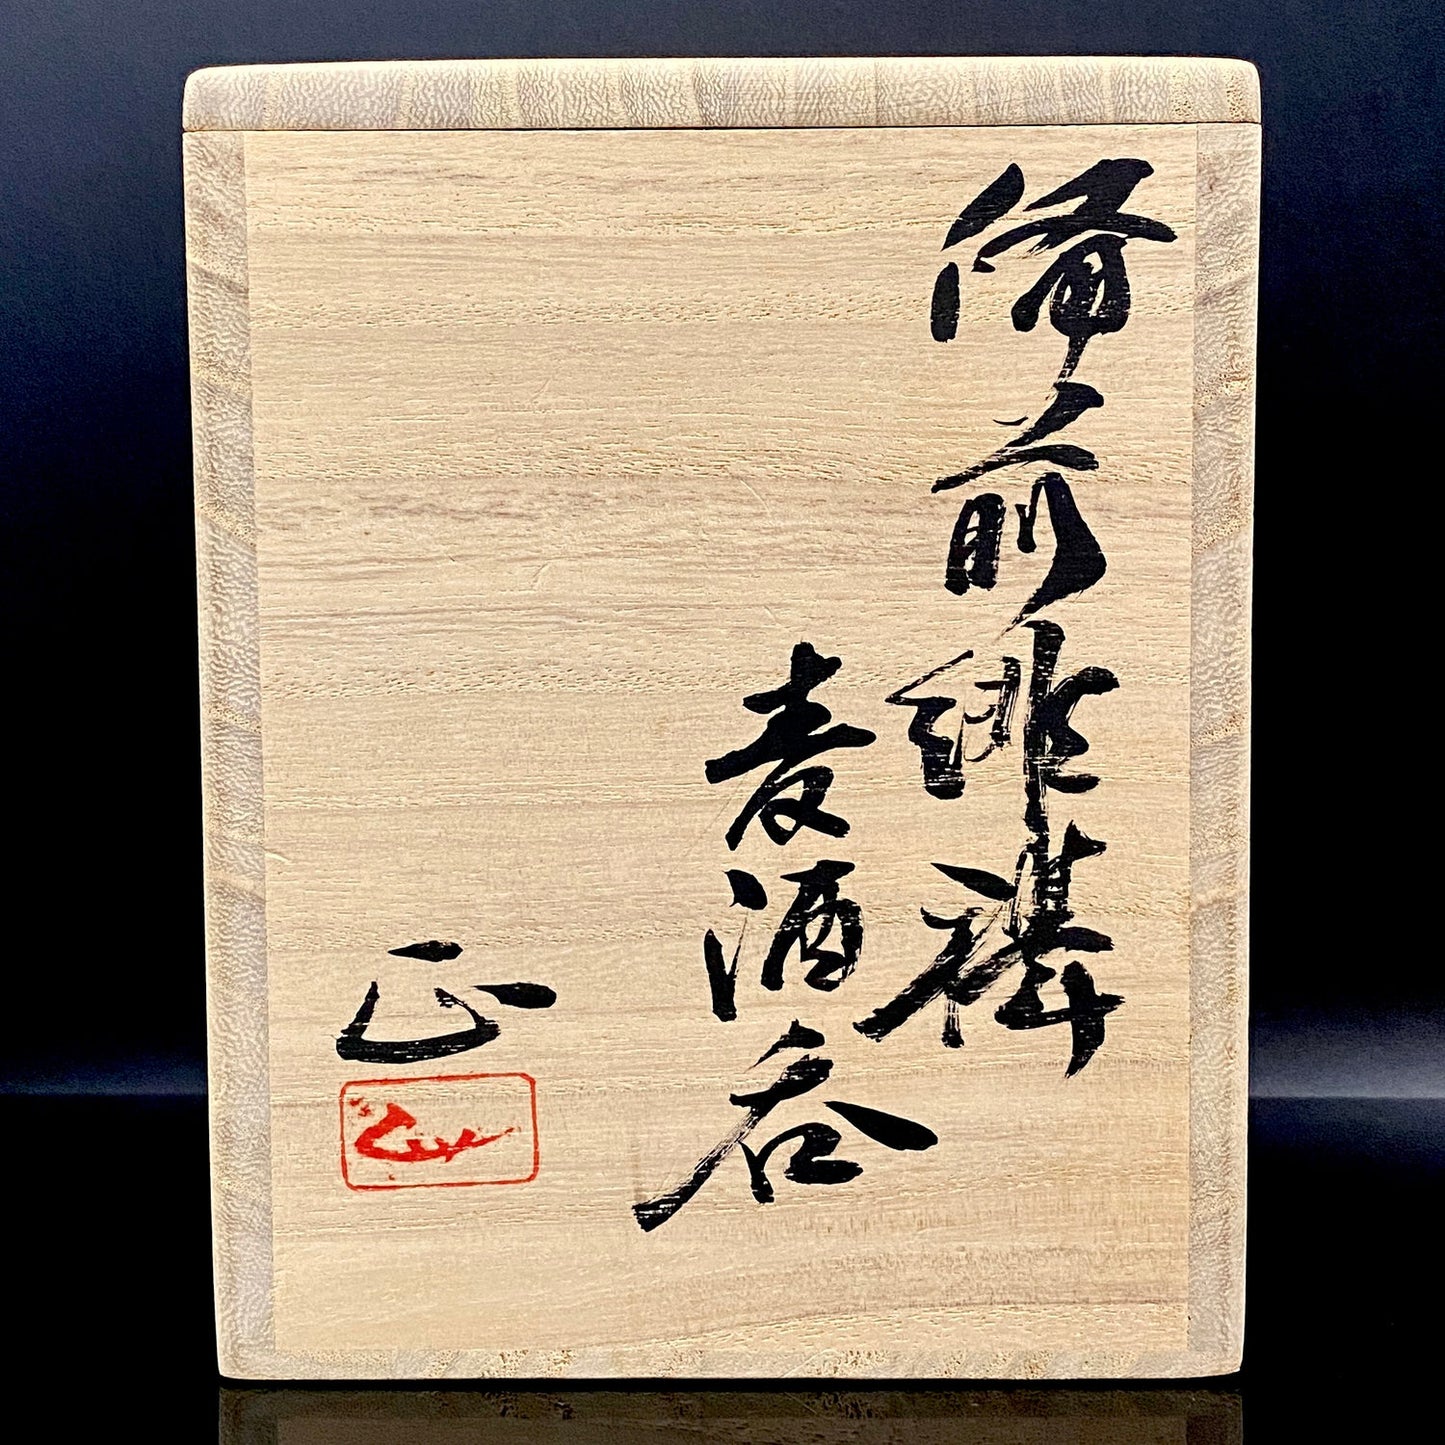 備前緋襷
麦酒呑
正